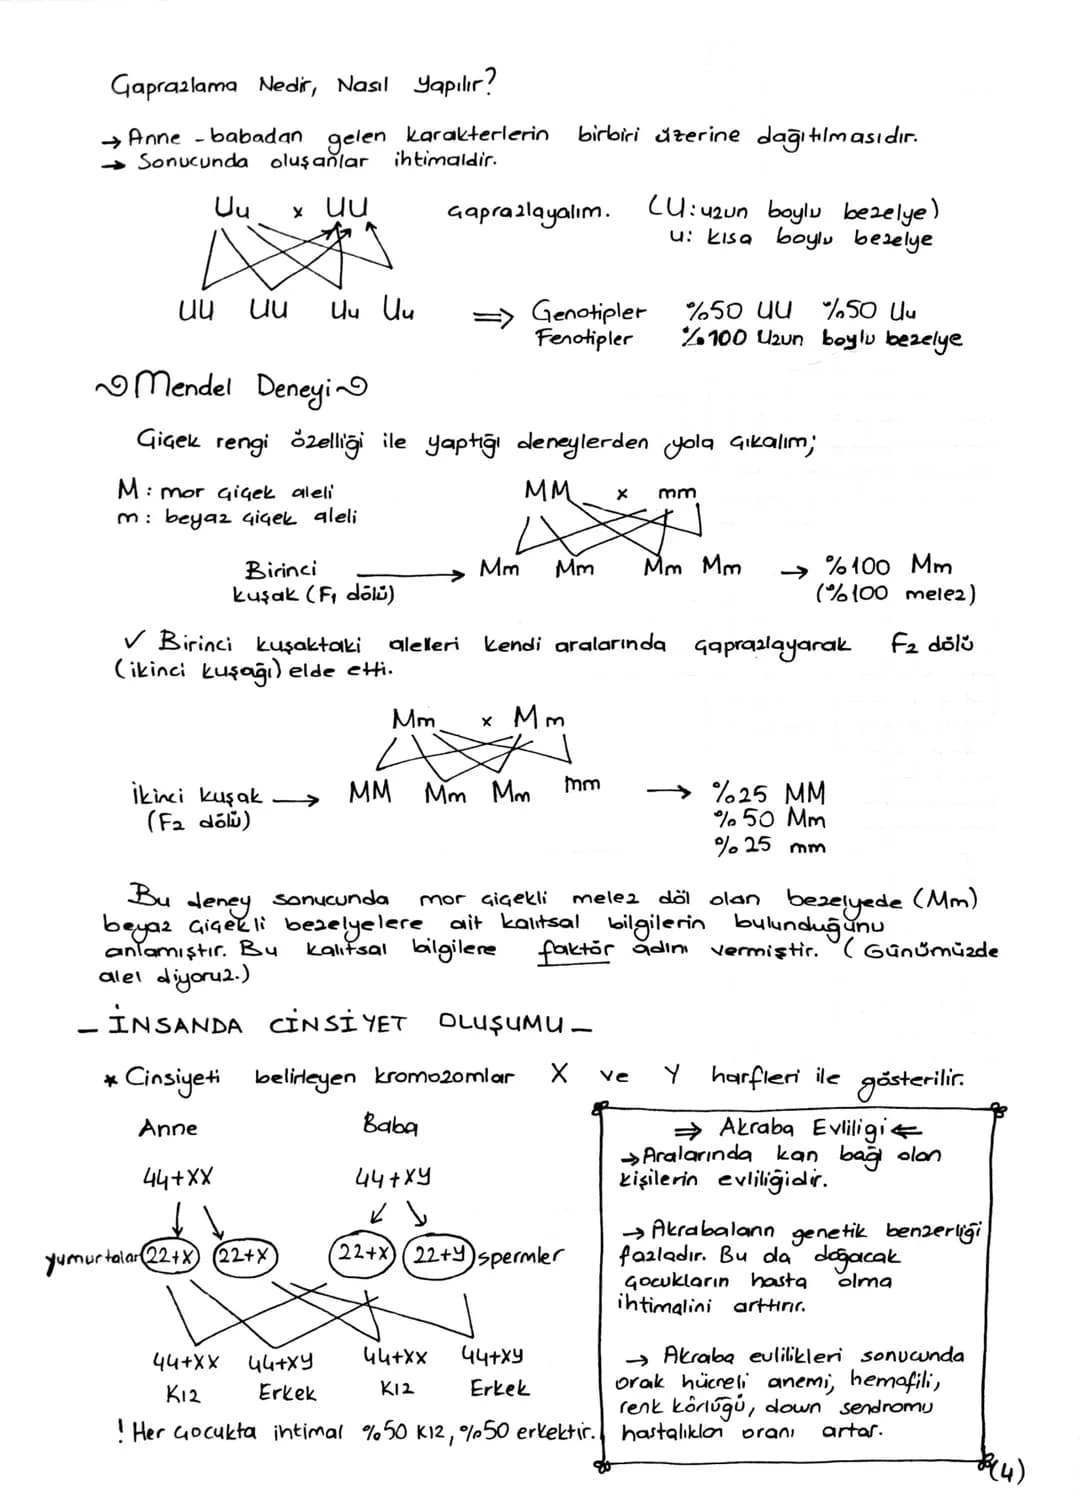 Çaprazlama Nedir, Nasıl Yapılır?
→ Anne - babadan gelen karakterlerin birbiri üzerine dağıtılmasıdır.
→ Sonucunda oluşanlar ihtimaldir.
Uu x UU Çaprazlayalım. (U: uzun boylu bezelye)
u: kısa boylu bezelye
UU UU Uu Uu ⇒ Genotipler %50 UU %50 Uu
Fenotipler %100 Uzun boylu bezelye
Mendel Deneyi
Çiçek rengi özelliği ile yaptığı deneylerden yola çıkalım;
M: mor çiçek aleli MM x mm
m: beyaz çiçek aleli
Birinci → Mm Mm Mm Mm → %100 Mm
kuşak (F₁ dölü) (%100 melez)
✓ Birinci kuşaktaki alelleri kendi aralarında çaprazlayarak F₂ dölü
(ikinci kuşağı) elde etti.
Mm x Mm
İkinci kuşak → MM Mm Mm mm → %25 MM
(F₂ dölü) %50 Mm
%25 mm
Bu deney sonucunda mor çiçekli melez döl olan bezelyede (Mm)
beyaz çiçekli bezelyelere ait kalıtsal bilgilerin bulunduğunu
anlamıştır. Bu kalıtsal bilgilere faktör adını vermiştir. (Günümüzde
alel diyoruz.)
- İNSANDA CİNSİYET OLUŞUMU -
* Cinsiyeti belirleyen kromozomlar X ve Y harfleri ile gösterilir.
Anne Baba
44+XX 44+XY
yumurtalar 22+X 22+X 22+X 22+Y spermler
44+XX 44+XY 44+XX 44+XY
Kız Erkek Kız Erkek
! Her çocukta ihtimal %50 kız, %50 erkektir.
⇒ Akraba Evliligi ⇐
→ Aralarında kan bağı olan
kişilerin evliliğidir.
→ Akrabaların genetik benzerliği
fazladır. Bu da doğacak
çocukların hasta olma
ihtimalini arttırır.
→ Akraba evlilikleri sonucunda
orak hücreli anemi, hemofili,
renk körlüğü, down sendromu
hastalıkları oranı artar.
(4)